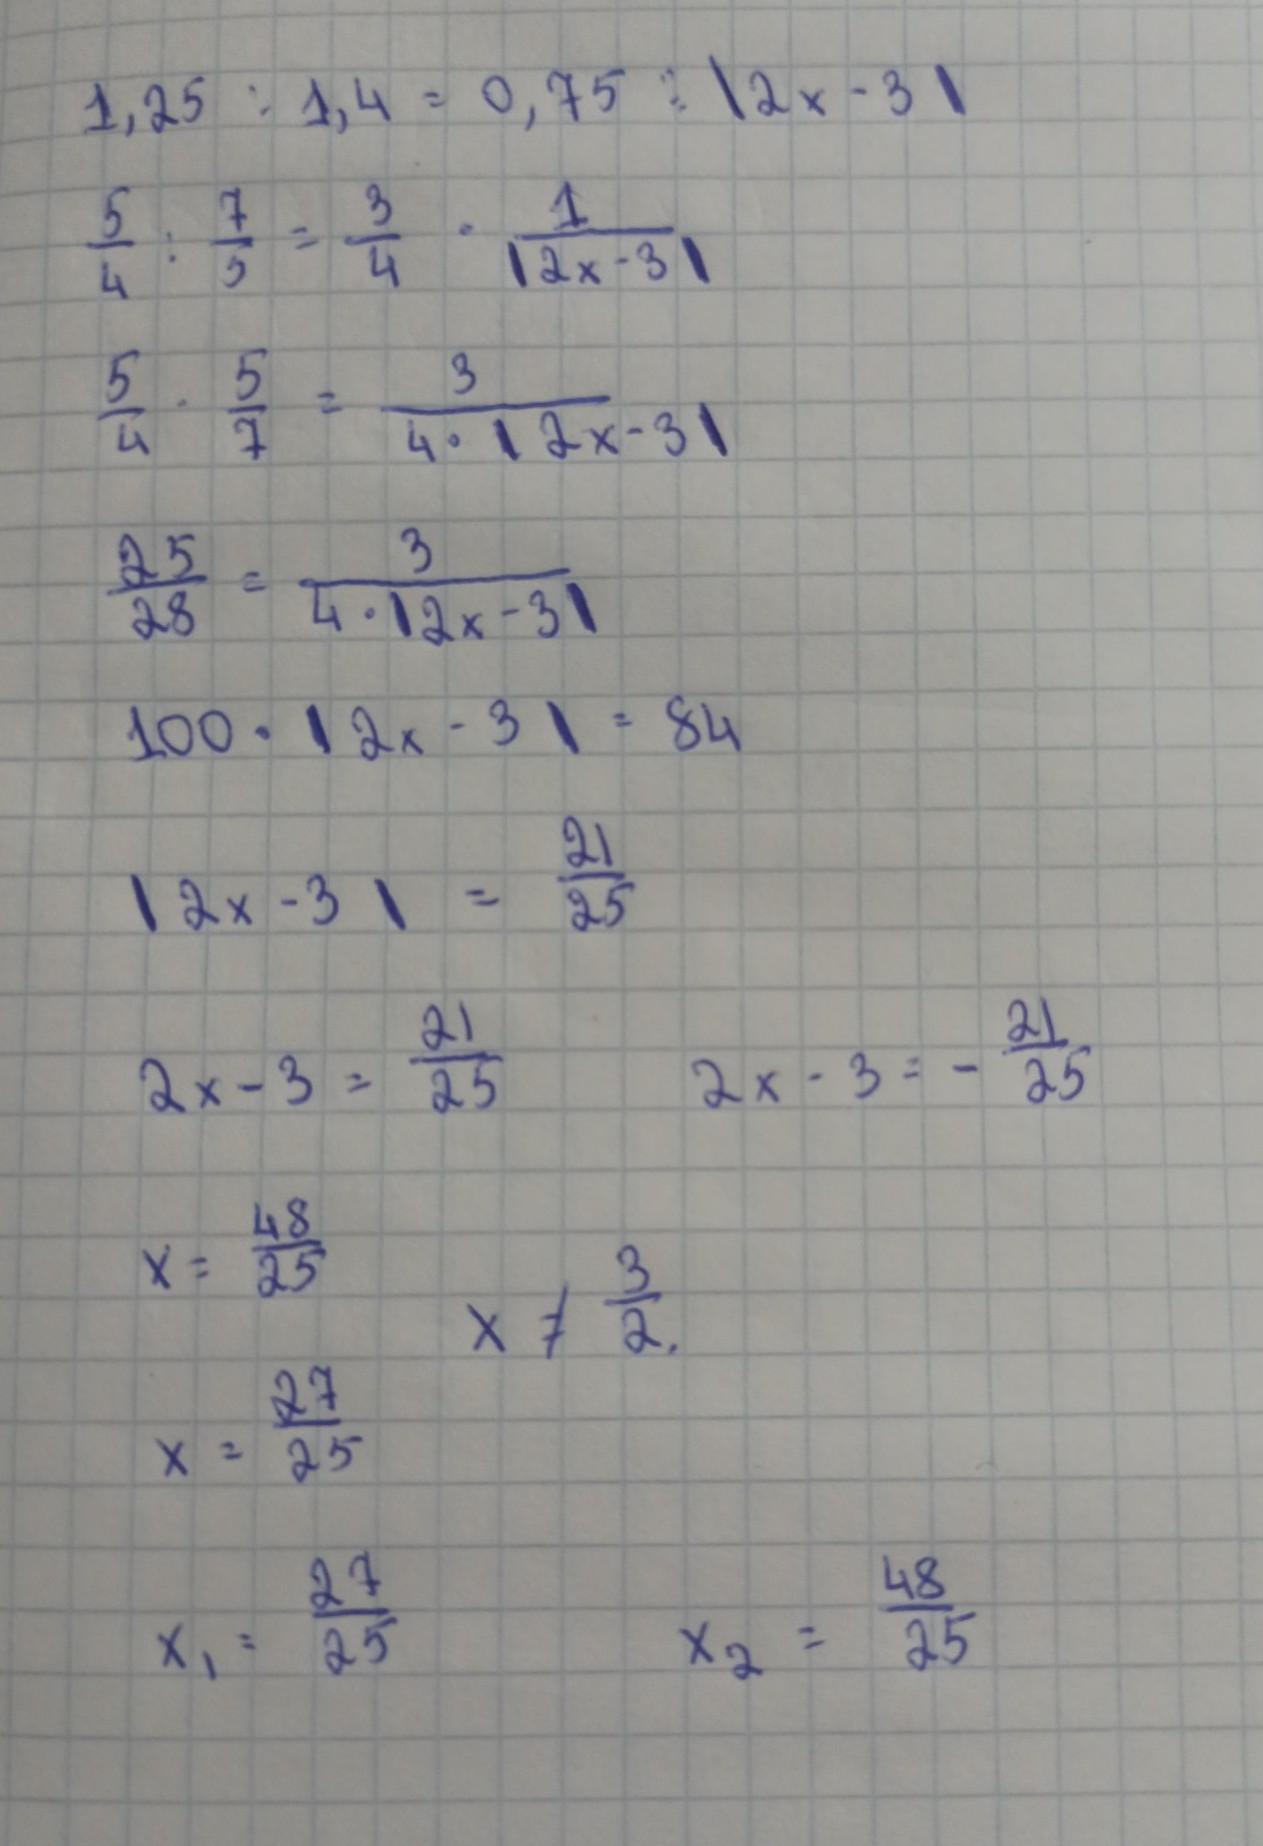 1,25 : 1,4 = 0,75 : |2x - 3|
5/4 : 7/5 = 3/4 · 1/|2x - 3|
5/4 · 5/7 = 3/(4 · |2x - 3|)
25/28 = 3/(4 · |2x - 3|)
100 · |2x - 3| = 84
|2x - 3| = 21/25
2x - 3 = 21/25 2x - 3 = - 21/25
x = 48/25
x ≠ 3/2.
x = 27/25
x₁ = 27/25 x₂ = 48/25